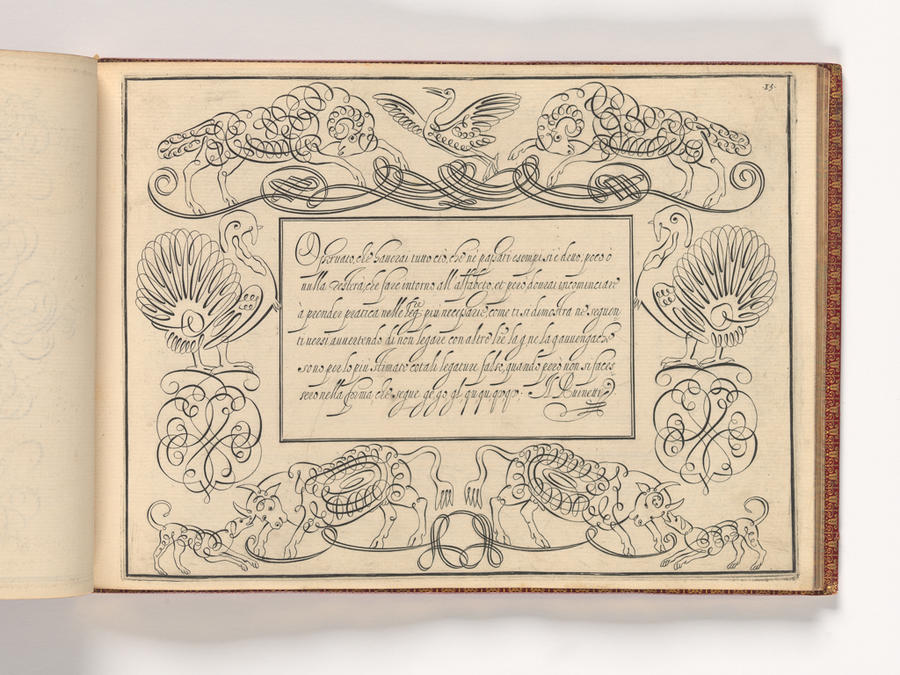 15.
Osseruato, che hauerai tutto ciò, che nè passati esempi si è detto, poco ò
nulla resterà che fare intorno all' alfabeto, et però dourai incominciare
à prender pratica nelle più necessarie, come ti si dimostra ne' seguen
ti uersi auuertendo di non legare con altre l'e la g ne la q auuengache
sono per lo più stimate cotali legature false, quando però non si faces
sero nella forma che segue ge. go. gl. qu. qu. qo. qo. Il Ruinetti.